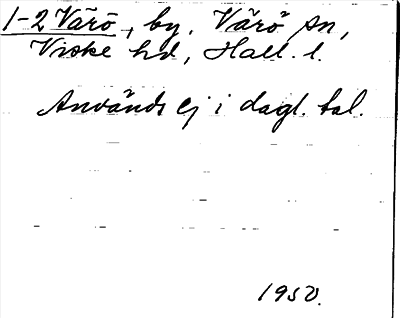 1-2 Värö, by. Värö sn,
Viske hd, Hall. l.
Används ej i dagl. tal.
1950.